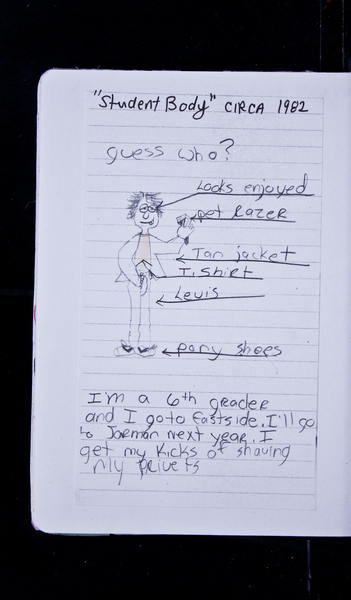 "Student Body" CIRCA 1982
guess who?
Looks enjoyed
pet Razer
Tan jacket
T. Shirt
Levis
pony shoes
I'm a 6th grader
and I go to Eastside. I'll go
to Jorman next year. I
get my kicks of shaving
my privets